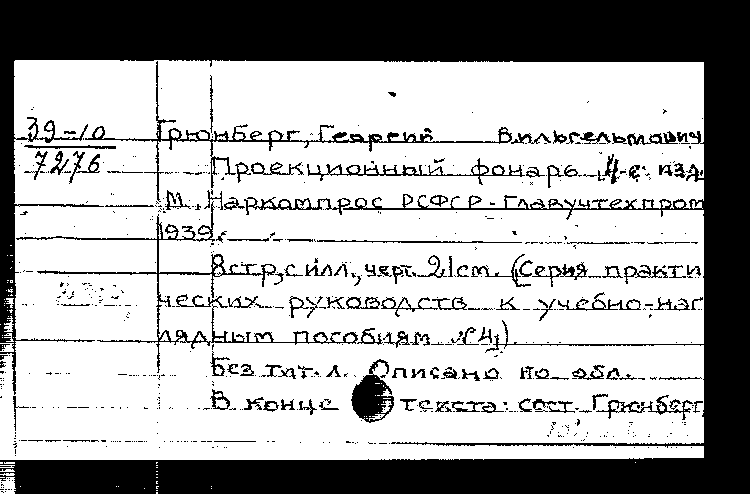 39-10
7276
Грюнберг, Георгий Вильгельмович
Проекционный фонарь 4-е изд.
М., Наркомпрос РСФСР - Главучтехпром
1939.
8 стр., с илл., черт. 21 см. (Серия практи
ческих руководств к учебно-наг
лядным пособиям № 41).
Без тит. л. Описано по обл.
В конце текста: сост. Грюнберг,